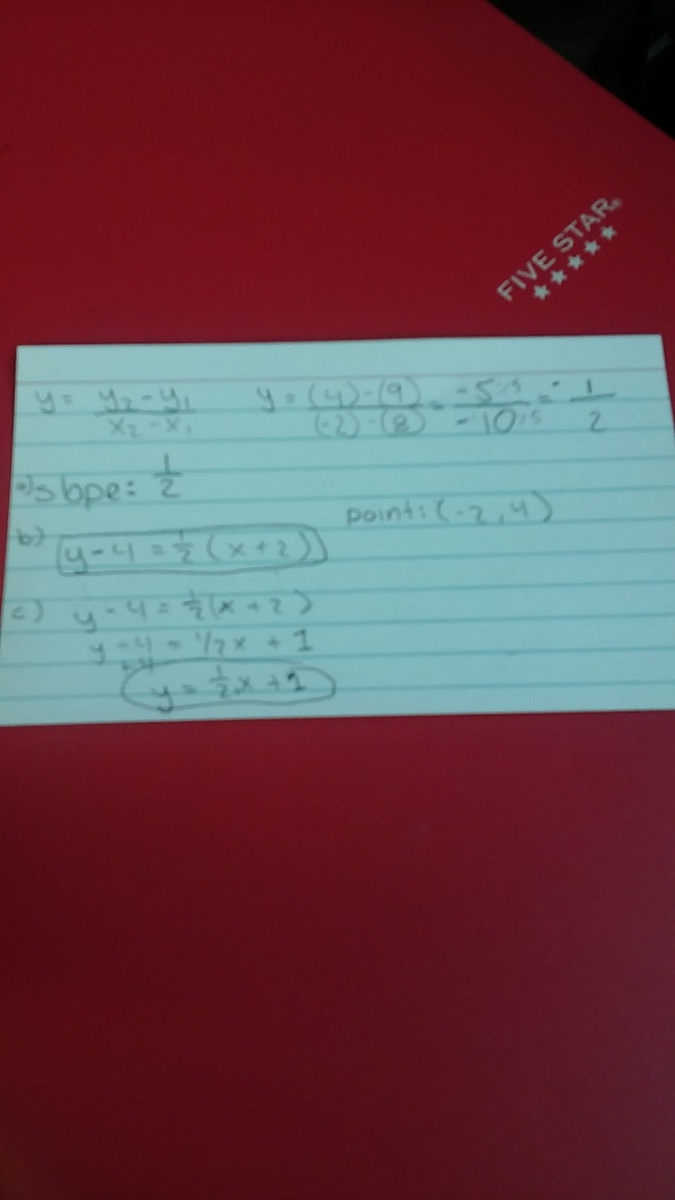 FIVE STAR®
★★★★★
y = y₂-y₁/x₂-x₁ y = (4)-(9)/(-2)-(8) = -5÷5/-10÷5 = 1/2
a) slope: 1/2
point: (-2, 4)
b) y-4 = 1/2 (x+2)
c) y-4 = 1/2(x+2)
y-4 = 1/2x + 1
+4
y = 1/2x +1